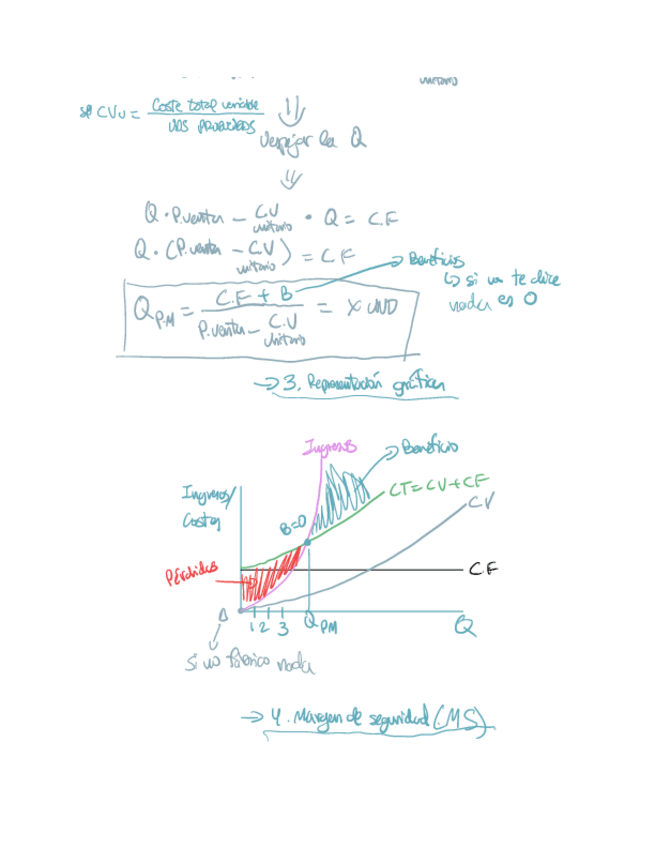 unitario
CVu = Coste total variable / uds producidas
Despejar la Q
Q · P.venta - C.V unitario · Q = C.F
Q · (P.venta - C.V unitario) = C.F
Q P.M = C.F + B / P.venta - C.V unitario = X UND
→ Beneficios
↳ si no te dice
nada es 0
→ 3. Representación gráfica
Ingresos
Beneficio
Ingresos/
Costes
CT = CV + CF
CV
B=0
Pérdidas
C.F
1 2 3 Q PM Q
Si no fabrico nada
→ 4. Margen de seguridad (MS)